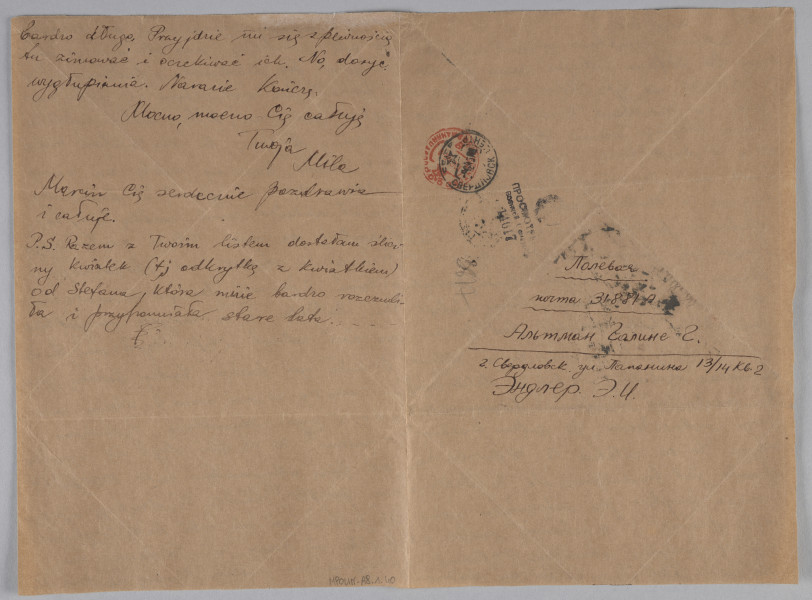 bardzo długo. Przyjdzie mi się z pewnością
tu zimować i oczekiwać ich. No, dosyć
wygłupiania. Narazie kończę.
Mocno, mocno Cię całuję
Twoja
Mila
Marcin Cię serdecznie pozdrawia
i całuje.
P.S. Razem z Twoim listem dostałam ślicz-
ny kwiatek (tj odkrytkę z kwiatkiem)
od Stefana, która mnie bardzo rozczuli-
ła i przypomniała stare lata....
СВЕРДЛОВСК
ПРОСМОТРЕНО
Полевая
почта 31881 А.
Альтман Галине С.
г. Свердловск ул. Папанина 13/14 кв. 2
Эндлер. Э.И.